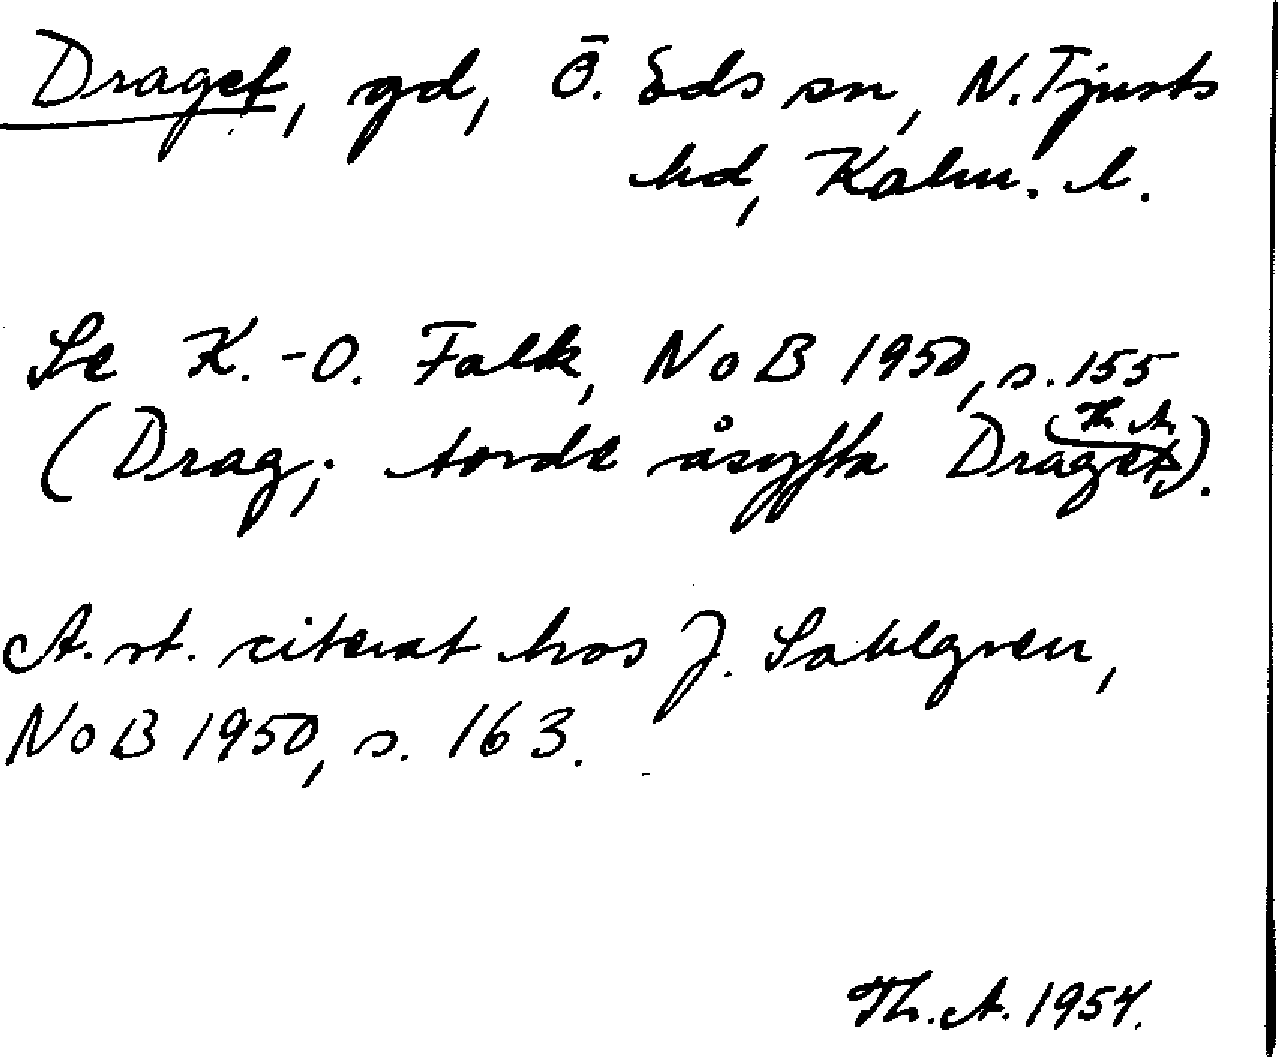 Draget, gd, Ö. Eds sn, N. Tjusts
hd, Kalm. l.
Se K.-O. Falk, NoB 1950, s. 155
(Drag; torde åsyfta Draget Th. A.).
A. st. citerat hos J. Sahlgren,
NoB 1950, s. 163.
Th. A. 1954.